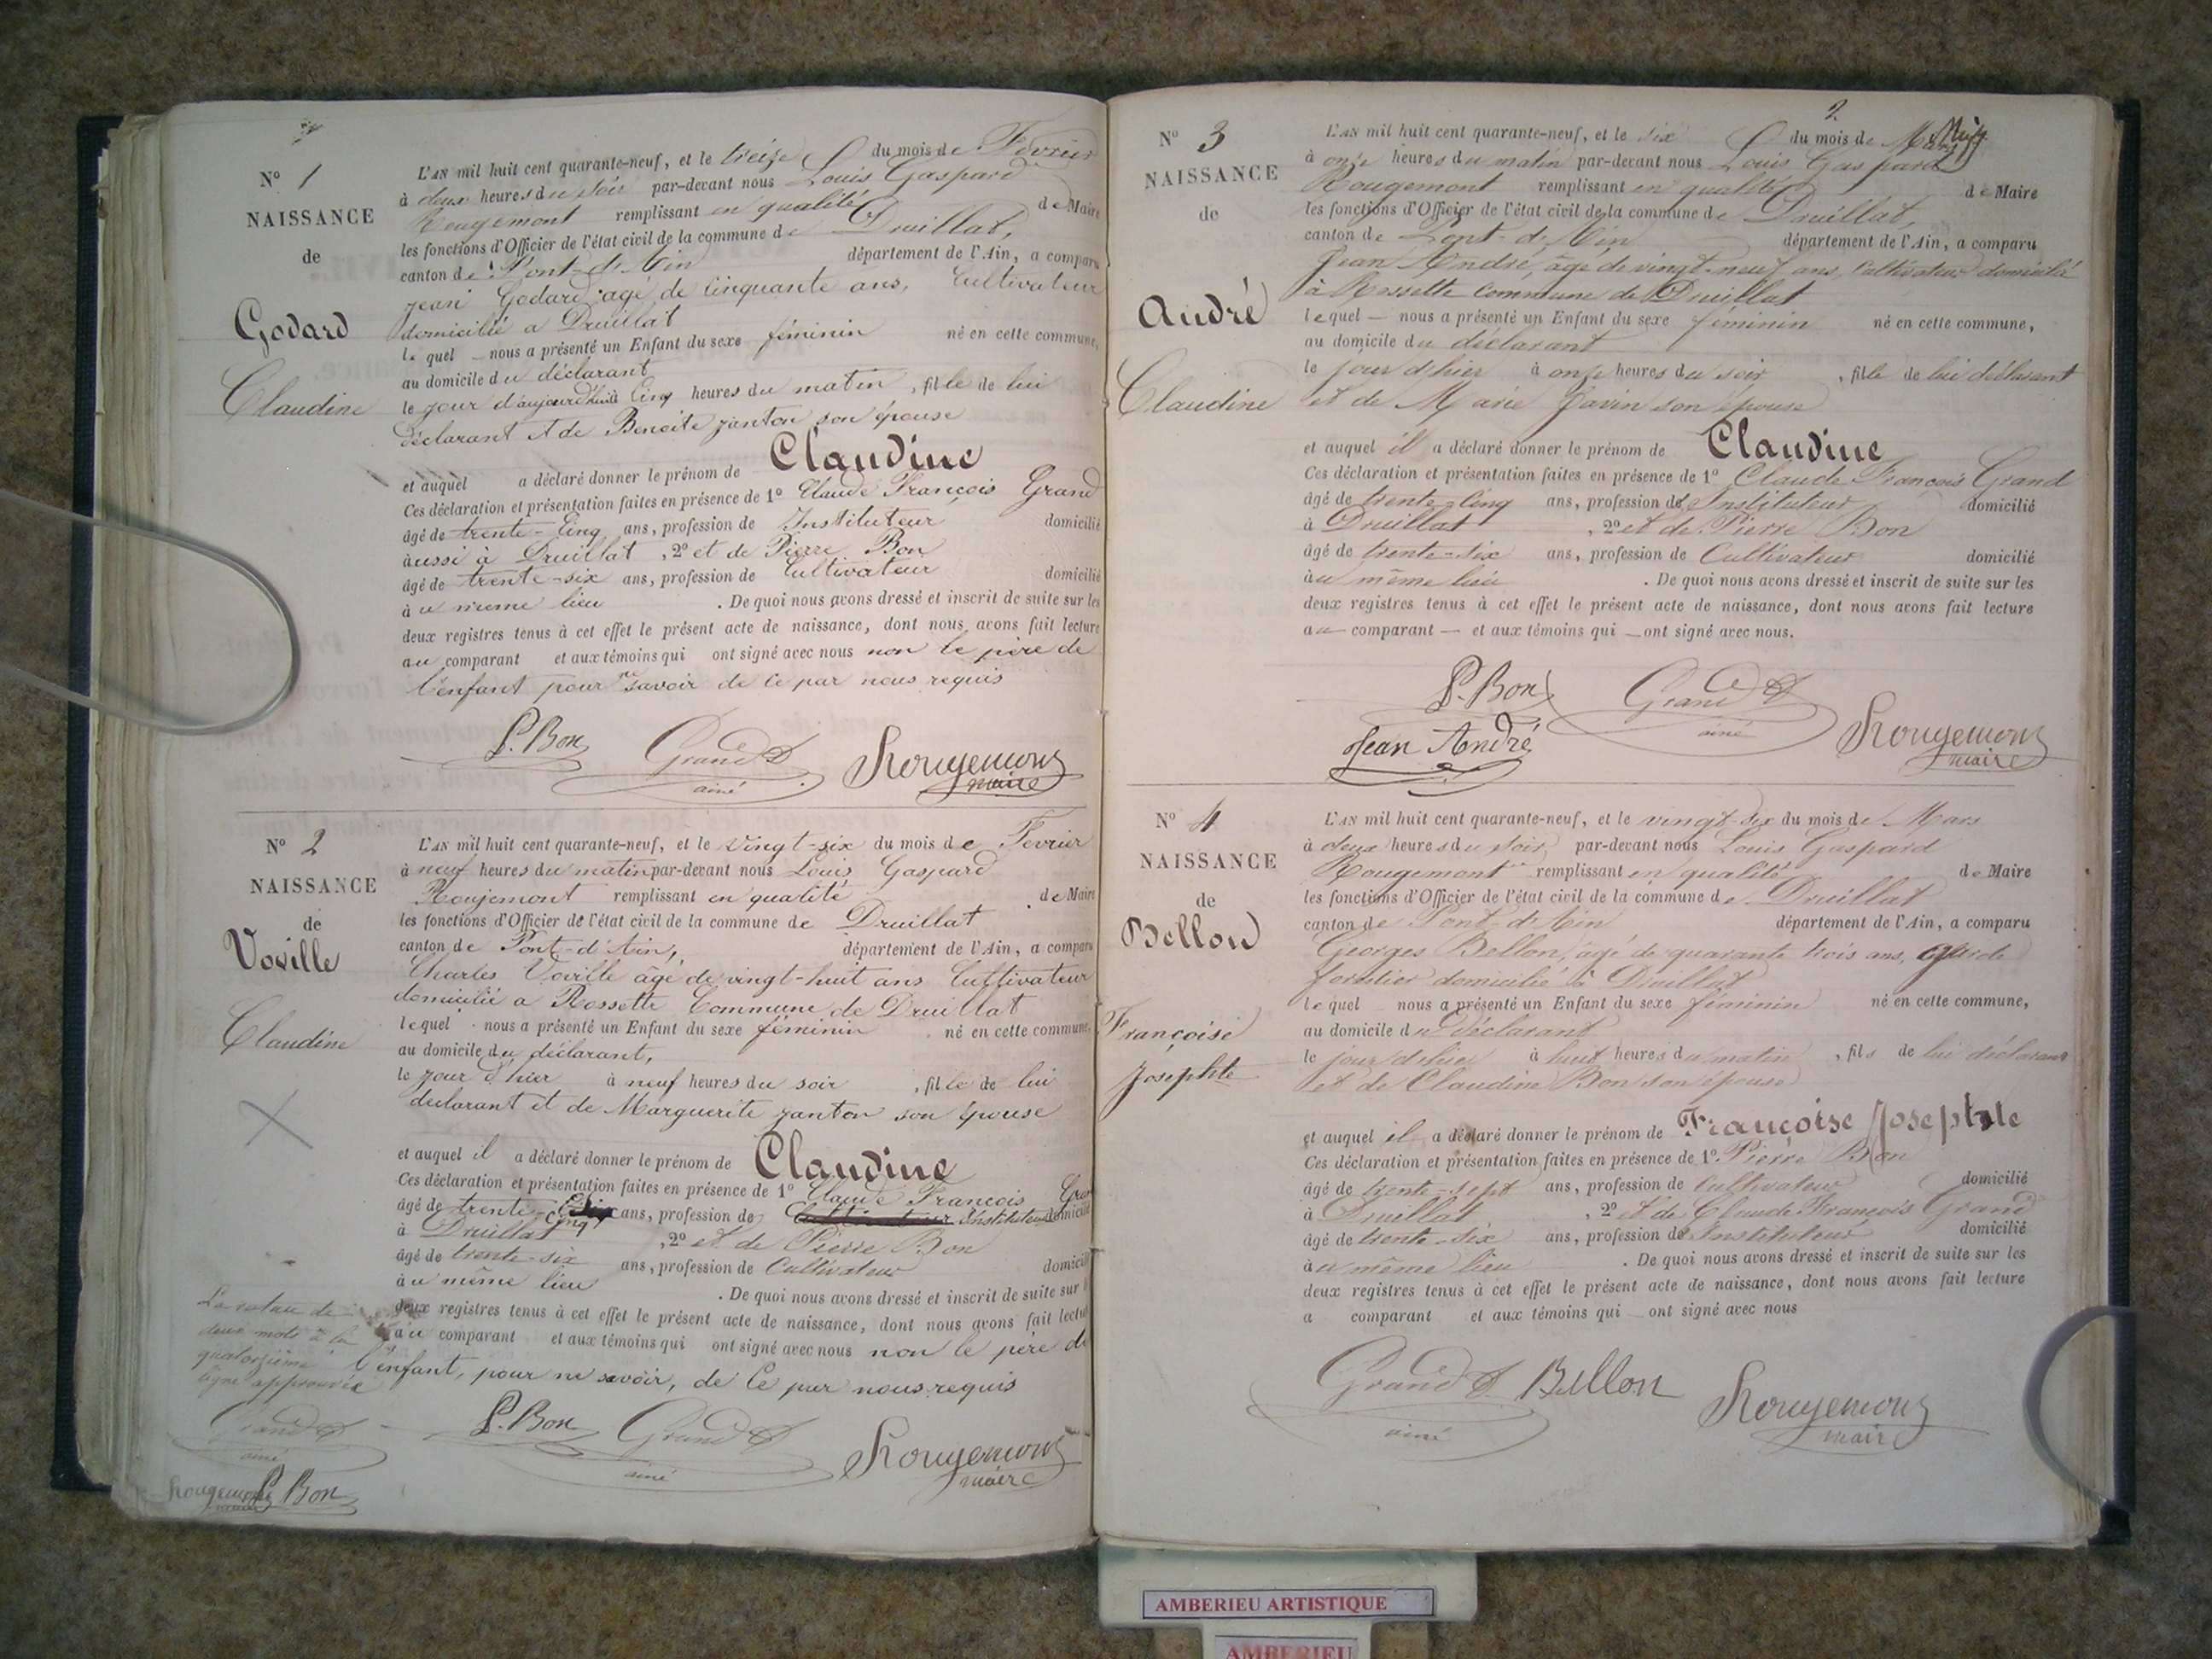 N° 1
NAISSANCE
de
Godard
Claudine
L'AN mil huit cent quarante-neuf, et le treize du mois de Fevrier
à deux heures du soir par-devant nous Louis Gaspard
Rougemont remplissant en qualité de Maire
les fonctions d'Officier de l'état civil de la commune de Druillat,
canton de Pont-d'Ain département de l'Ain, a comparu
Jean Godard agé de Cinquante ans, Cultivateur
domicilié a Druillat
le quel nous a présenté un Enfant du sexe féminin né en cette commune,
au domicile du déclarant
le jour d'aujourd'hui à Cinq heures du matin , fille de lui
déclarant et de Benoite Janton son épouse
et auquel a déclaré donner le prénom de Claudine
Ces déclaration et présentation faites en présence de 1° Claude François Grand
âgé de trente-Cinq ans, profession de Instituteur domicilié
àussi à Druillat , 2° et de Pierre Bon
âgé de trente-six ans, profession de Cultivateur domicilié
à u meme lieu . De quoi nous avons dressé et inscrit de suite sur les
deux registres tenus à cet effet le présent acte de naissance, dont nous avons fait lecture
au comparant et aux témoins qui ont signé avec nous non le père de
l'enfant pour ne savoir de ce par nous requis
P. Bon Grand aîné Rougemont maire
N° 2
NAISSANCE
de
Voville
Claudine
L'AN mil huit cent quarante-neuf, et le Vingt-six du mois de Fevrier
à neuf heures du matin par-devant nous Louis Gaspard
Roujemont remplissant en qualité de Maire
les fonctions d'Officier de l'état civil de la commune de Druillat
canton de Pont-d'Ain, département de l'Ain, a comparu
Charles Voville âgé de vingt-huit ans Cultivateur
domicilié a Rossette Commune de Druillat
lequel nous a présenté un Enfant du sexe féminin né en cette commune,
au domicile du déclarant,
le jour d'hier à neuf heures du soir , fille de lui
declarant et de Marguerite Janton son épouse
et auquel il a déclaré donner le prénom de Claudine
Ces déclaration et présentation faites en présence de 1° Claude François Gra
âgé de trente-cinq ans, profession de Instituteur domicilié
à Druillat , 2° et de Pierre Bon
âgé de trente-six ans, profession de Cultivateur domicili
à u même lieu . De quoi nous avons dressé et inscrit de suite sur l
deux registres tenus à cet effet le présent acte de naissance, dont nous avons fait lectu
au comparant et aux témoins qui ont signé avec nous non le père de
l'enfant, pour ne savoir, de ce par nous requis
La rature de
deux mots à la
quatorzième
ligne approuvée
P. Bon Grand aîné Rougemont maire
Grand aîné
Rougemont maire P. Bon
2.
N° 3
NAISSANCE
de
André
Claudine
L'AN mil huit cent quarante-neuf, et le six du mois de Mars
à onze heures du matin par-devant nous Louis Gaspard
Rougemont remplissant en qualité de Maire
les fonctions d'Officier de l'état civil de la commune de Druillat,
canton de Pont-d'Ain département de l'Ain, a comparu
Jean André, âgé de vingt-neuf ans, Cultivateur domicilié
à Rossette Commune de Druillat
lequel — nous a présenté un Enfant du sexe féminin né en cette commune,
au domicile du déclarant
le jour d'hier à onze heures du soir , fille de lui déclarant
et de Marie Javin son épouse
et auquel il a déclaré donner le prénom de Claudine
Ces déclaration et présentation faites en présence de 1° Claude François Grand
âgé de trente-cinq ans, profession de Instituteur domicilié
à Druillat , 2° et de Pierre Bon
âgé de trente-six ans, profession de Cultivateur domicilié
à u même lieu . De quoi nous avons dressé et inscrit de suite sur les
deux registres tenus à cet effet le présent acte de naissance, dont nous avons fait lecture
au comparant — et aux témoins qui — ont signé avec nous.
P. Bon Grand aîné
Jean André Rougemont maire
N° 4
NAISSANCE
de
Bellon
Françoise
Josephte
L'AN mil huit cent quarante-neuf, et le vingt-six du mois de Mars
à deux heures du soir par-devant nous Louis Gaspard
Rougemont remplissant en qualité de Maire
les fonctions d'Officier de l'état civil de la commune de Druillat
canton de Pont d'Ain département de l'Ain, a comparu
Georges Bellon, âgé de quarante trois ans, garde
forestier domicilié à Druillat
lequel nous a présenté un Enfant du sexe féminin né en cette commune,
au domicile du déclarant
le jour d'hier à huit heures du matin , fils de lui déclarant
et de Claudine Bon son épouse
et auquel il a déclaré donner le prénom de Françoise Josephte
Ces déclaration et présentation faites en présence de 1° Pierre Bon
âgé de trente-sept ans, profession de Cultivateur domicilié
à Druillat , 2° et de Claude François Grand
âgé de trente-six ans, profession de Instituteur domicilié
à u même lieu . De quoi nous avons dressé et inscrit de suite sur les
deux registres tenus à cet effet le présent acte de naissance, dont nous avons fait lecture
a comparant et aux témoins qui — ont signé avec nous
Grand aîné Bellon Rougemont maire
AMBERIEU ARTISTIQUE
AMBERIEU